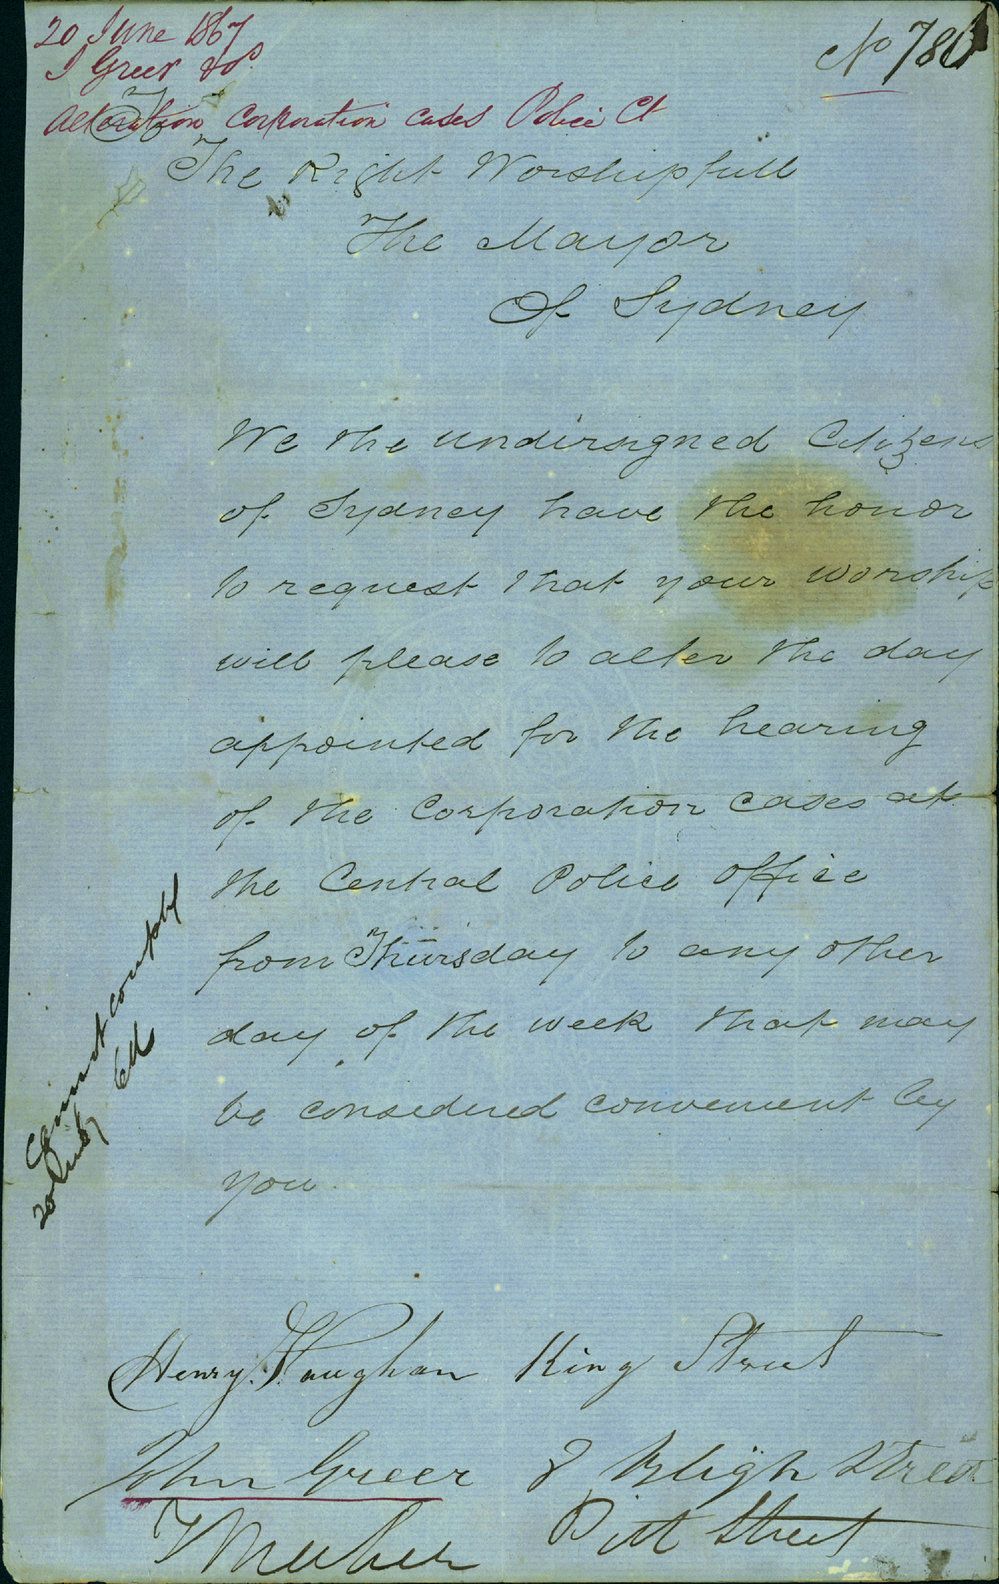 20 June 1867
J Greer &os
Alteration Corporation cases Police Ct
No 786
The Right Worshipfull
The Mayor
Of Sydney
We the undersigned Citizens
of Sydney have the honor
to request that your worship
will please to alter the day
appointed for the hearing
of the Corporation cases at
the Central Police Office
from Thursday to any other
day of the week that may
be considered convenient by
you.
Cannot comply
20
Henry Vaughan King Street
John Greer 8 Bligh Street
Pitt Street